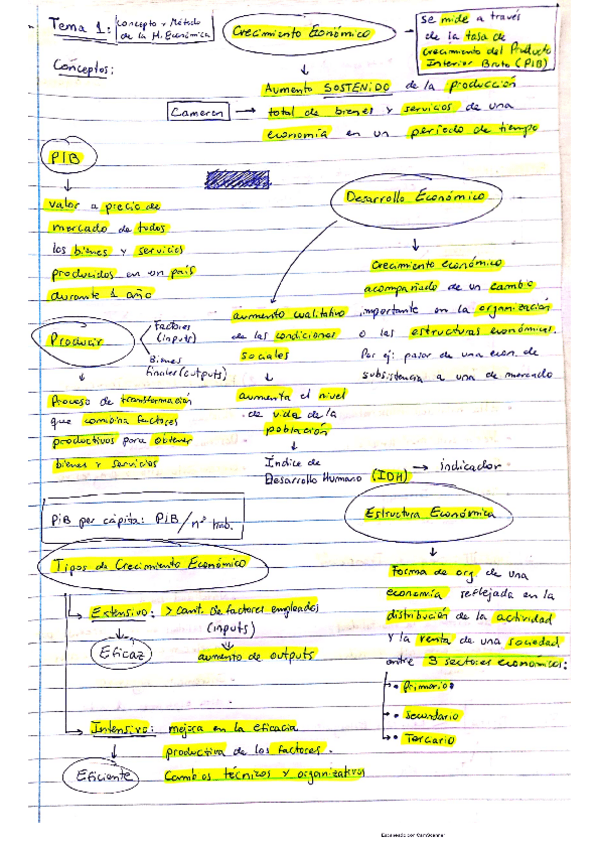 Tema 1: Concepto y Método
de la H. Económica
Crecimiento Económico
se mide a través
de la tasa de
crecimiento del Producto
Interior Bruto (PIB)
Conceptos:
Aumento SOSTENIDO de la producción
Cameron → total de bienes y servicios de una
economía en un periodo de tiempo
PIB
valor a precio de
mercado de todos
los bienes y servicios
producidos en un país
durante 1 año
Desarrollo Económico
Crecimiento económico
acompañado de un cambio
importante en la organización
o las estructuras económicas.
Por ej: pasar de una econ. de
subsistencia a una de mercado
aumento cualitativo
de las condiciones
sociales
aumenta el nivel
de vida de la
población
Índice de
Desarrollo Humano (IDH) → indicador
Producir
Factores
(inputs)
Bienes
finales (outputs)
Proceso de transformación
que combina factores
productivos para obtener
bienes y servicios
PiB per cápita: PIB/nº hab.
Estructura Económica
Forma de org. de una
economía reflejada en la
distribución de la actividad
y la renta de una sociedad
entre 3 sectores económicos:
• Primario
• Secundario
• Terciario
Tipos de Crecimiento Económico
Extensivo: > cant. de factores empleados
(inputs)
Eficaz
aumento de outputs
Intensivo: mejora en la eficacia
productiva de los factores.
Eficiente
Cambios técnicos y organizativos
Escaneado por CamScanner